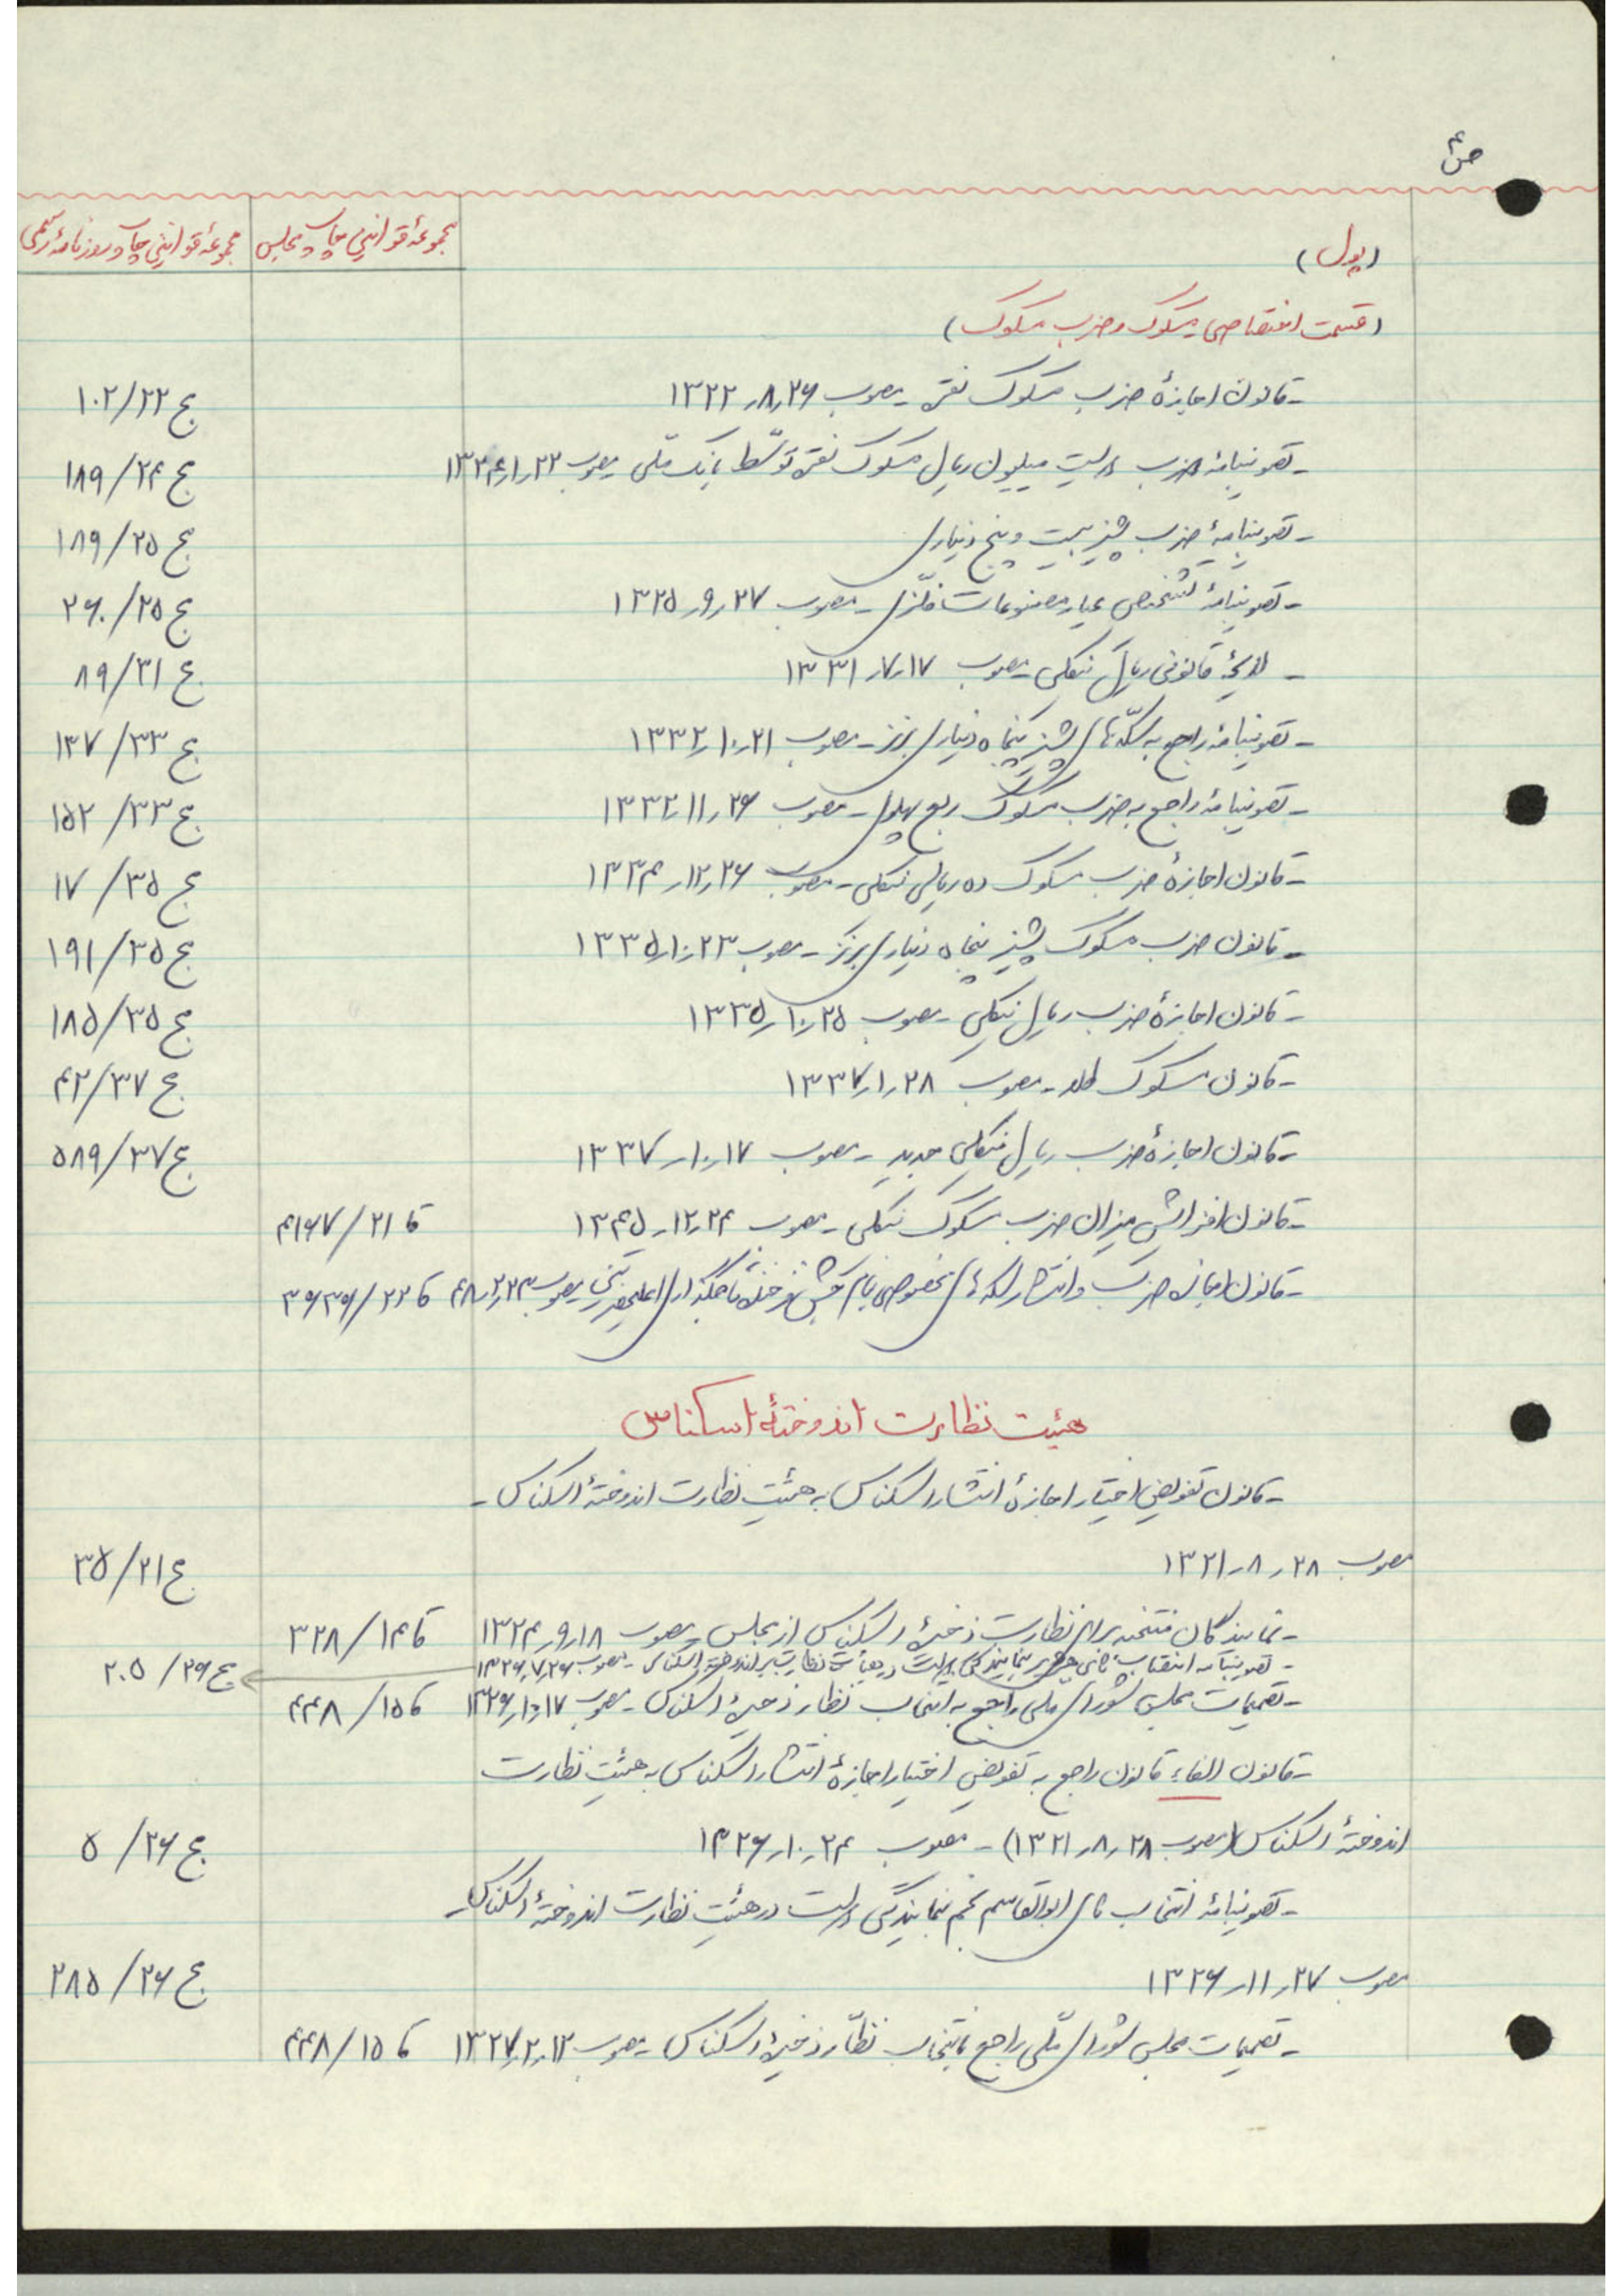 ص ۴
(پول) مجموعهٔ قوانین چاپ مجلس مجموعهٔ قوانین چاپ روزنامهٔ رسمی
(قسمت اختصاصی مسکوک و ضرب مسکوک)
- قانون اجازهٔ ضرب مسکوک نقره - مصوب ۱۳۲۲٫۸٫۲۶ ج ۱۰۲/۲۲
- تصویبنامهٔ ضرب دویست میلیون ریال مسکوک نقره توسّط بانک ملّی مصوب ۱۳۲۴٫۱٫۲۲ ج ۱۸۹/۲۴
- تصویبنامهٔ ضرب پشیز بیست و پنج دیناری ج ۱۸۹/۲۵
- تصویبنامهٔ تشخیص عیار مصنوعات فلّزی - مصوب ۱۳۲۵٫۹٫۲۷ ج ۲۶۰/۲۵
- لایحهٔ قانونی ریال نیکلی مصوب ۱۳۳۱٫۷٫۱۷ ج ۸۹/۳۱
- تصویبنامهٔ راجع به سکّه‌های پشیز پنجاه دیناری برنز - مصوب ۱۳۳۲٫۱۰٫۲۱ ج ۱۳۷/۳۳
- تصویبنامهٔ راجع به ضرب مسکوک ربع پهلوی - مصوب ۱۳۳۲٫۱۱٫۲۶ ج ۱۵۲/۳۳
- قانون اجازهٔ ضرب مسکوک ده ریالی نیکلی - مصوب ۱۳۳۴٫۱۲٫۲۶ ج ۱۷/۳۵
- قانون ضرب مسکوک پشیز پنجاه دیناری برنز - مصوب ۱۳۳۵٫۱۰٫۲۳ ج ۱۹۱/۳۵
- قانون اجازهٔ ضرب ریال نیکلی - مصوب ۱۳۳۵٫۱۰٫۲۵ ج ۱۸۵/۳۵
- قانون مسکوک طلا - مصوب ۱۳۳۷٫۱٫۲۸ ج ۴۲/۳۷
- قانون اجازهٔ ضرب ریال نیکلی جدید - مصوب ۱۳۳۷٫۱۰٫۱۷ ج ۵۸۹/۳۷
- قانون افزایش میزان ضرب مسکوک نیکلی - مصوب ۱۳۴۵٫۱۲٫۲۴ قا ۴۱۶۷/۲۱
- قانون اجازه ضرب و انتشار سکه‌های مخصوص بنام جشن فرخنده تاجگذاری اعلیحضرتین مصوب قا ۳۶۳۶/۲۲
هیئت نظارت اندوختهٔ اسکناس
- قانون تفویض اختیار اجازهٔ انتشار اسکناس به هیئت نظارت اندوختهٔ اسکناس -
مصوب ۱۳۲۱٫۸٫۲۸ ج ۳۵/۲۱
- نمایندگان منتخبه برای نظارت ذخیرهٔ اسکناس از مجلس - مصوب ۱۳۲۴٫۹٫۱۸ قا ۳۲۸/۱۴
- تصویبنامه انتخاب بنمایندگی دولت در هیأت نظارت اندوختهٔ اسکناس - مصوب ۱۳۲۶٫۷٫۲۶ ج ۲۰۵/۲۶
- تصمیمات مجلس شورای ملی راجع به انتخاب نظار ذخیرهٔ اسکناس - مصوب ۱۳۲۶٫۱۰٫۱۷ قا ۴۴۸/۱۵
- قانون الغاء قانون راجع به تفویض اختیار اجازهٔ انتشار اسکناس به هیئت نظارت
اندوختهٔ اسکناس (مصوب ۱۳۲۱٫۸٫۲۸) - مصوب ۱۳۲۶٫۱۰٫۲۴ ج ۵/۲۶
- تصویبنامهٔ انتخاب آقای ابوالقاسم نجم بنمایندگی دولت در هیئت نظارت اندوختهٔ اسکناس -
مصوب ۱۳۲۶٫۱۱٫۲۷ ج ۲۸۵/۲۶
- تصمیمات مجلس شورای ملّی راجع بانتخاب نظّار ذخیرهٔ اسکناس - مصوب ۱۳۲۷٫۲٫۱۲ قا ۴۴۸/۱۵